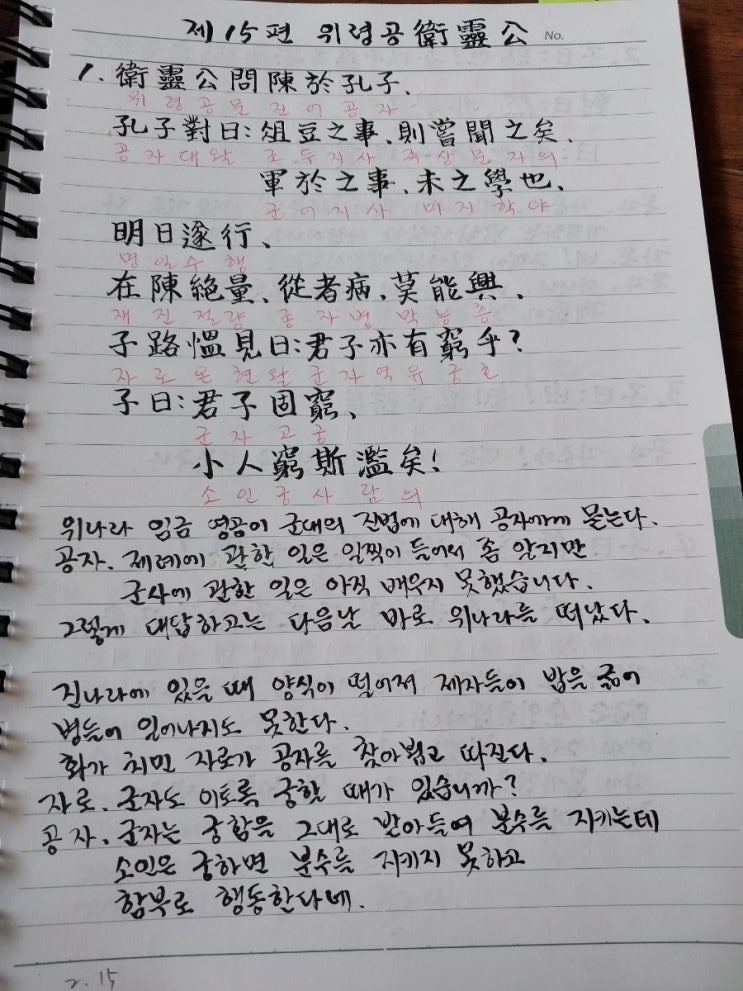 제 15 편 위령공 衛靈公 No.
1. 衛靈公問陳於孔子、
위령공문진어공자
孔子對曰:俎豆之事、則嘗聞之矣、
공자대왈 조두지사 즉상문지의
軍於之事、未之學也、
군어지사 미지학야
明日遂行、
명일수행
在陳絶量、從者病、莫能興、
재진절량 종자병 막능흥
子路慍見曰:君子亦有窮乎?
자로온현왈 군자역유궁호
子曰:君子固窮、
군자고궁
小人窮斯濫矣!
소인궁사람의
위나라 임금 영공이 군대의 진법에 대해 공자에게 묻는다.
공자. 제례에 관한 일은 일찍이 들어서 좀 알지만
군사에 관한 일은 아직 배우지 못했습니다.
그렇게 대답하고는 다음날 바로 위나라를 떠났다.
진나라에 있을 때 양식이 떨어져 제자들이 밥을 굶어
병들어 일어나지도 못한다.
화가 치민 자로가 공자를 찾아뵙고 따진다.
자로. 군자도 이토록 궁할 때가 있습니까?
공자. 군자는 궁함을 그대로 받아들여 분수를 지키는데
소인은 궁하면 분수를 지키지 못하고
함부로 행동한다네.
2. 15